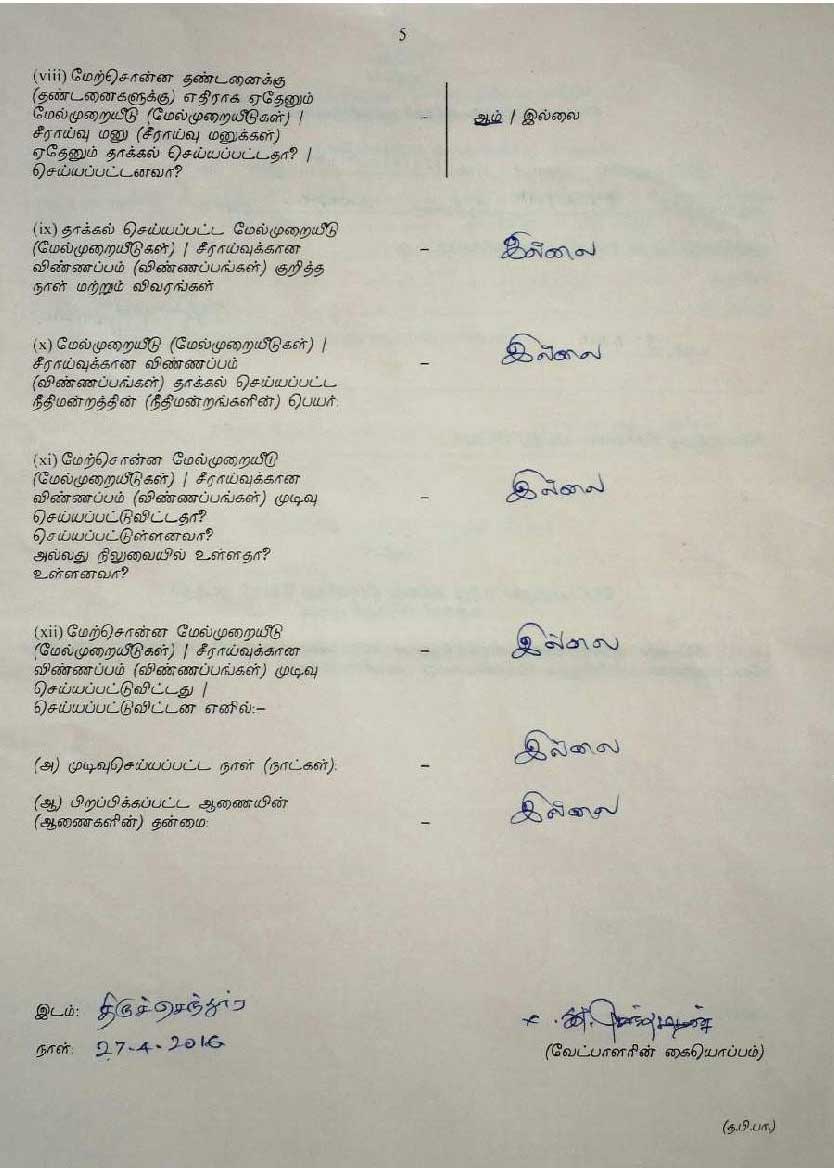 5
(viii) மேற்சொன்ன தண்டனைக்கு
(தண்டனைகளுக்கு) எதிராக ஏதேனும்
மேல்முறையீடு (மேல்முறையீடுகள்) | - ஆம் | இல்லை
சீராய்வு மனு (சீராய்வு மனுக்கள்)
ஏதேனும் தாக்கல் செய்யப்பட்டதா? |
செய்யப்பட்டனவா?
(ix) தாக்கல் செய்யப்பட்ட மேல்முறையீடு
(மேல்முறையீடுகள்) | சீராய்வுக்கான - இல்லை
விண்ணப்பம் (விண்ணப்பங்கள்) குறித்த
நாள் மற்றும் விவரங்கள்
(x) மேல்முறையீடு (மேல்முறையீடுகள்) |
சீராய்வுக்கான விண்ணப்பம் - இல்லை
(விண்ணப்பங்கள்) தாக்கல் செய்யப்பட்ட
நீதிமன்றத்தின் (நீதிமன்றங்களின்) பெயர்:
(xi) மேற்சொன்ன மேல்முறையீடு
(மேல்முறையீடுகள்) | சீராய்வுக்கான
விண்ணப்பம் (விண்ணப்பங்கள்) முடிவு - இல்லை
செய்யப்பட்டுவிட்டதா?
செய்யப்பட்டுள்ளனவா?
அல்லது நிலுவையில் உள்ளதா?
உள்ளனவா?
(xii) மேற்சொன்ன மேல்முறையீடு
(மேல்முறையீடுகள்) | சீராய்வுக்கான - இல்லை
விண்ணப்பம் (விண்ணப்பங்கள்) முடிவு
செய்யப்பட்டுவிட்டது |
செய்யப்பட்டுவிட்டன எனில்:–
(அ) முடிவுசெய்யப்பட்ட நாள் (நாட்கள்): - இல்லை
(ஆ) பிறப்பிக்கப்பட்ட ஆணையின்
(ஆணைகளின்) தன்மை: - இல்லை
இடம்: திருச்செந்தூர்
நாள்: 27-4-2016
(வேட்பாளரின் கையொப்பம்)
(த.பி.பா.)